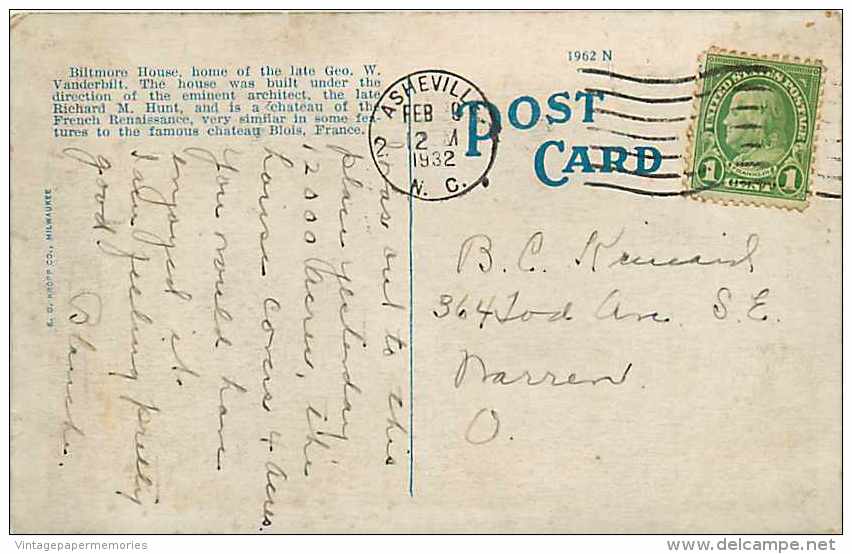 Biltmore House, home of the late Geo. W.
Vanderbilt. The house was built under the
direction of the eminent architect, the late
Richard M. Hunt, and is a chateau of the
French Renaissance, very similar in some fea-
tures to the famous chateau Blois, France.
1962 N
POST
CARD
ASHEVILLE
FEB 9
12 M
1932
N. C.
UNITED STATES POSTAGE
FRANKLIN
1 CENT 1
E. C. KROPP CO., MILWAUKEE
Was out to this
place yesterday
12000 acres, the
house covers 4 acres.
You would have
enjoyed it.
I am feeling pretty
good.
Blanche.
B. C. Kinnaird
364 Tod Ave. S.E.
Warren
O.
Vintagepapermemories
delcampe.net